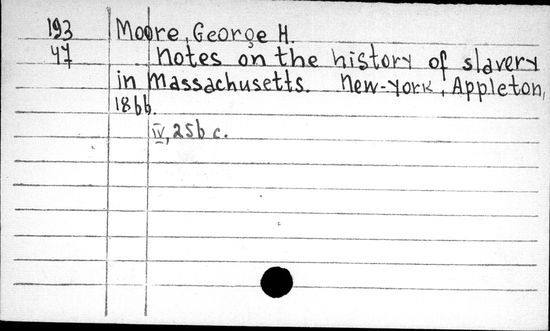 193 Moore, George H.
47 Notes on the history of slavery
in Massachusetts. New-York, Appleton,
1866.
iv, 256 c.